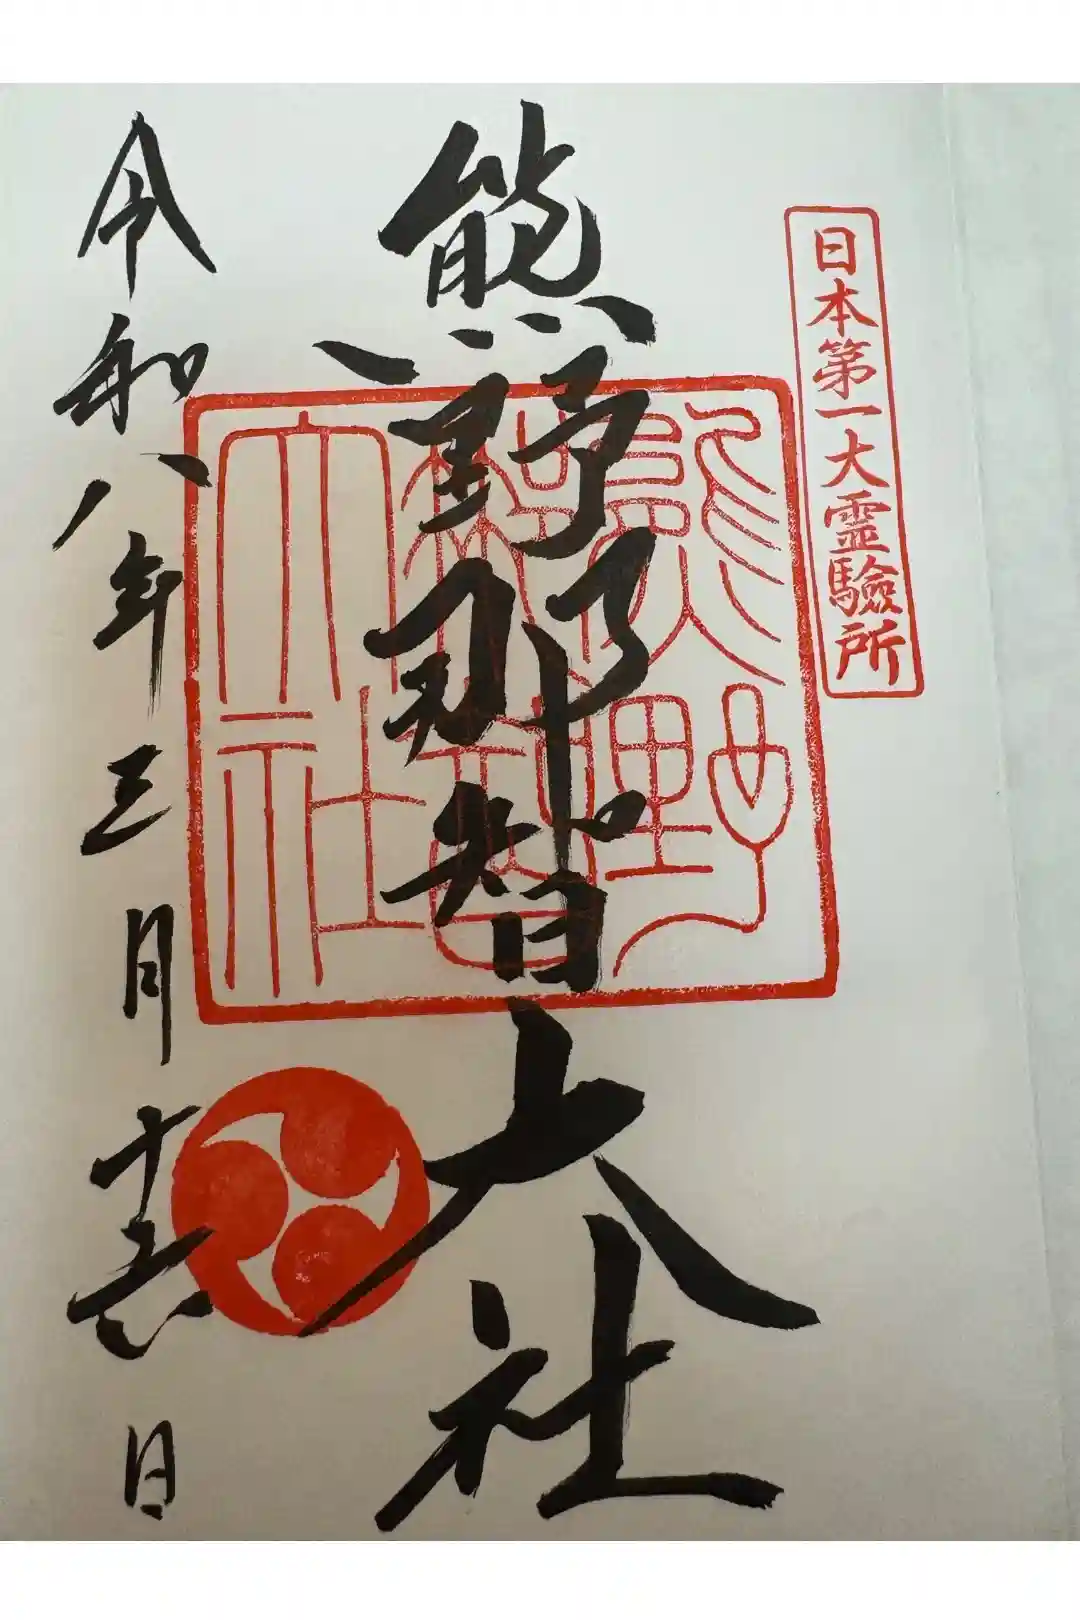 日本第一大霊驗所
熊野那智大社
熊野那智大社
令和八年三月十 日